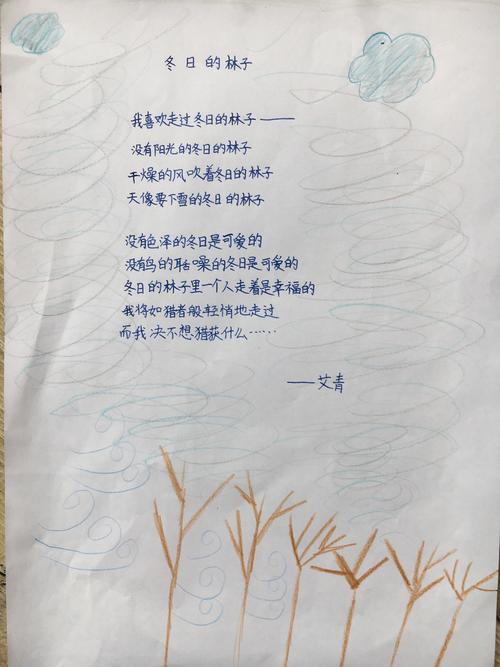 冬日的林子
我喜欢走过冬日的林子——
没有阳光的冬日的林子
干燥的风吹着冬日的林子
天像要下雪的冬日的林子
没有色泽的冬日是可爱的
没有鸟的聒噪的冬日是可爱的
冬日的林子里一个人走着是幸福的
我将如猎者般轻悄地走过
而我决不想猎获什么……
——艾青